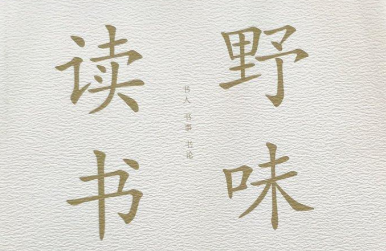 野味
读书
书人 书事 书论